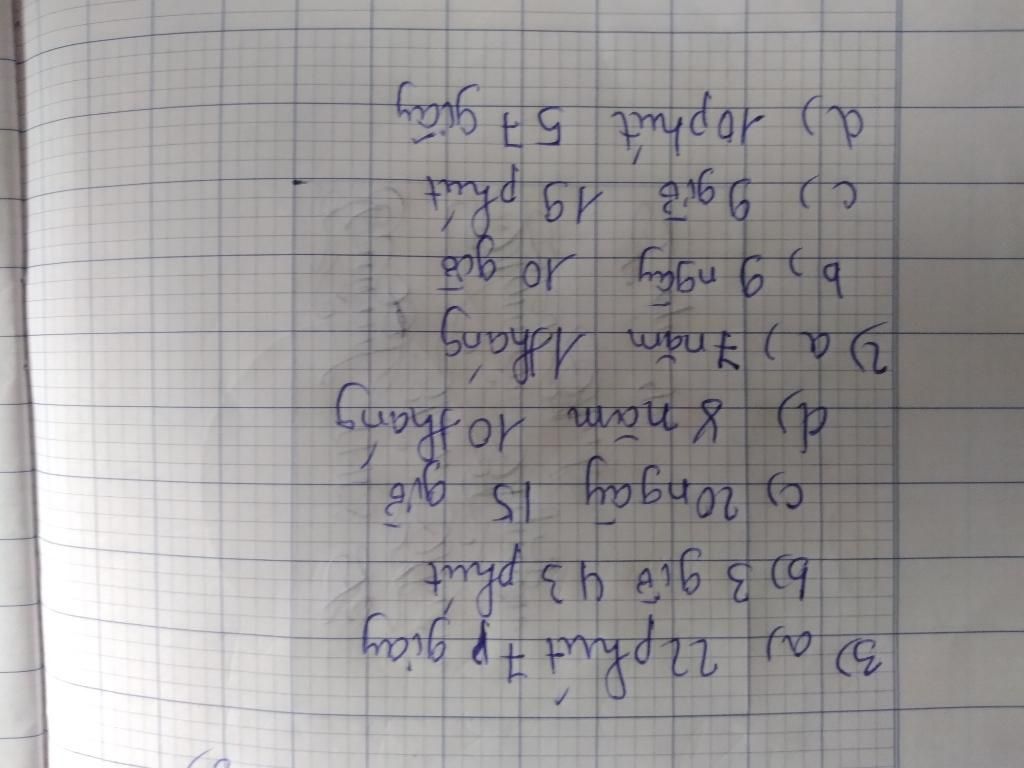 3) a) 22 phút 7 giây
b) 3 giờ 43 phút
c) 20 ngày 15 giờ
d) 8 năm 10 tháng
2) a) 7 năm 1 tháng
b) 9 ngày 10 giờ
c) 9 giờ 19 phút
d) 10 phút 57 giây